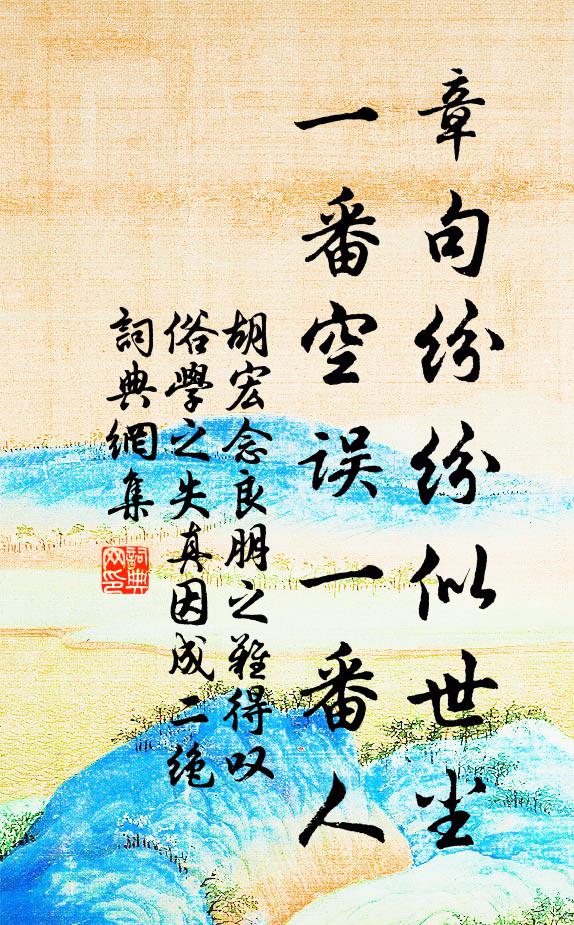 章句紛紛似世尘
一番空誤一番人
胡宏念良朋之難得叹
俗學之失真因成二絶
詞典網集
詞典
网印